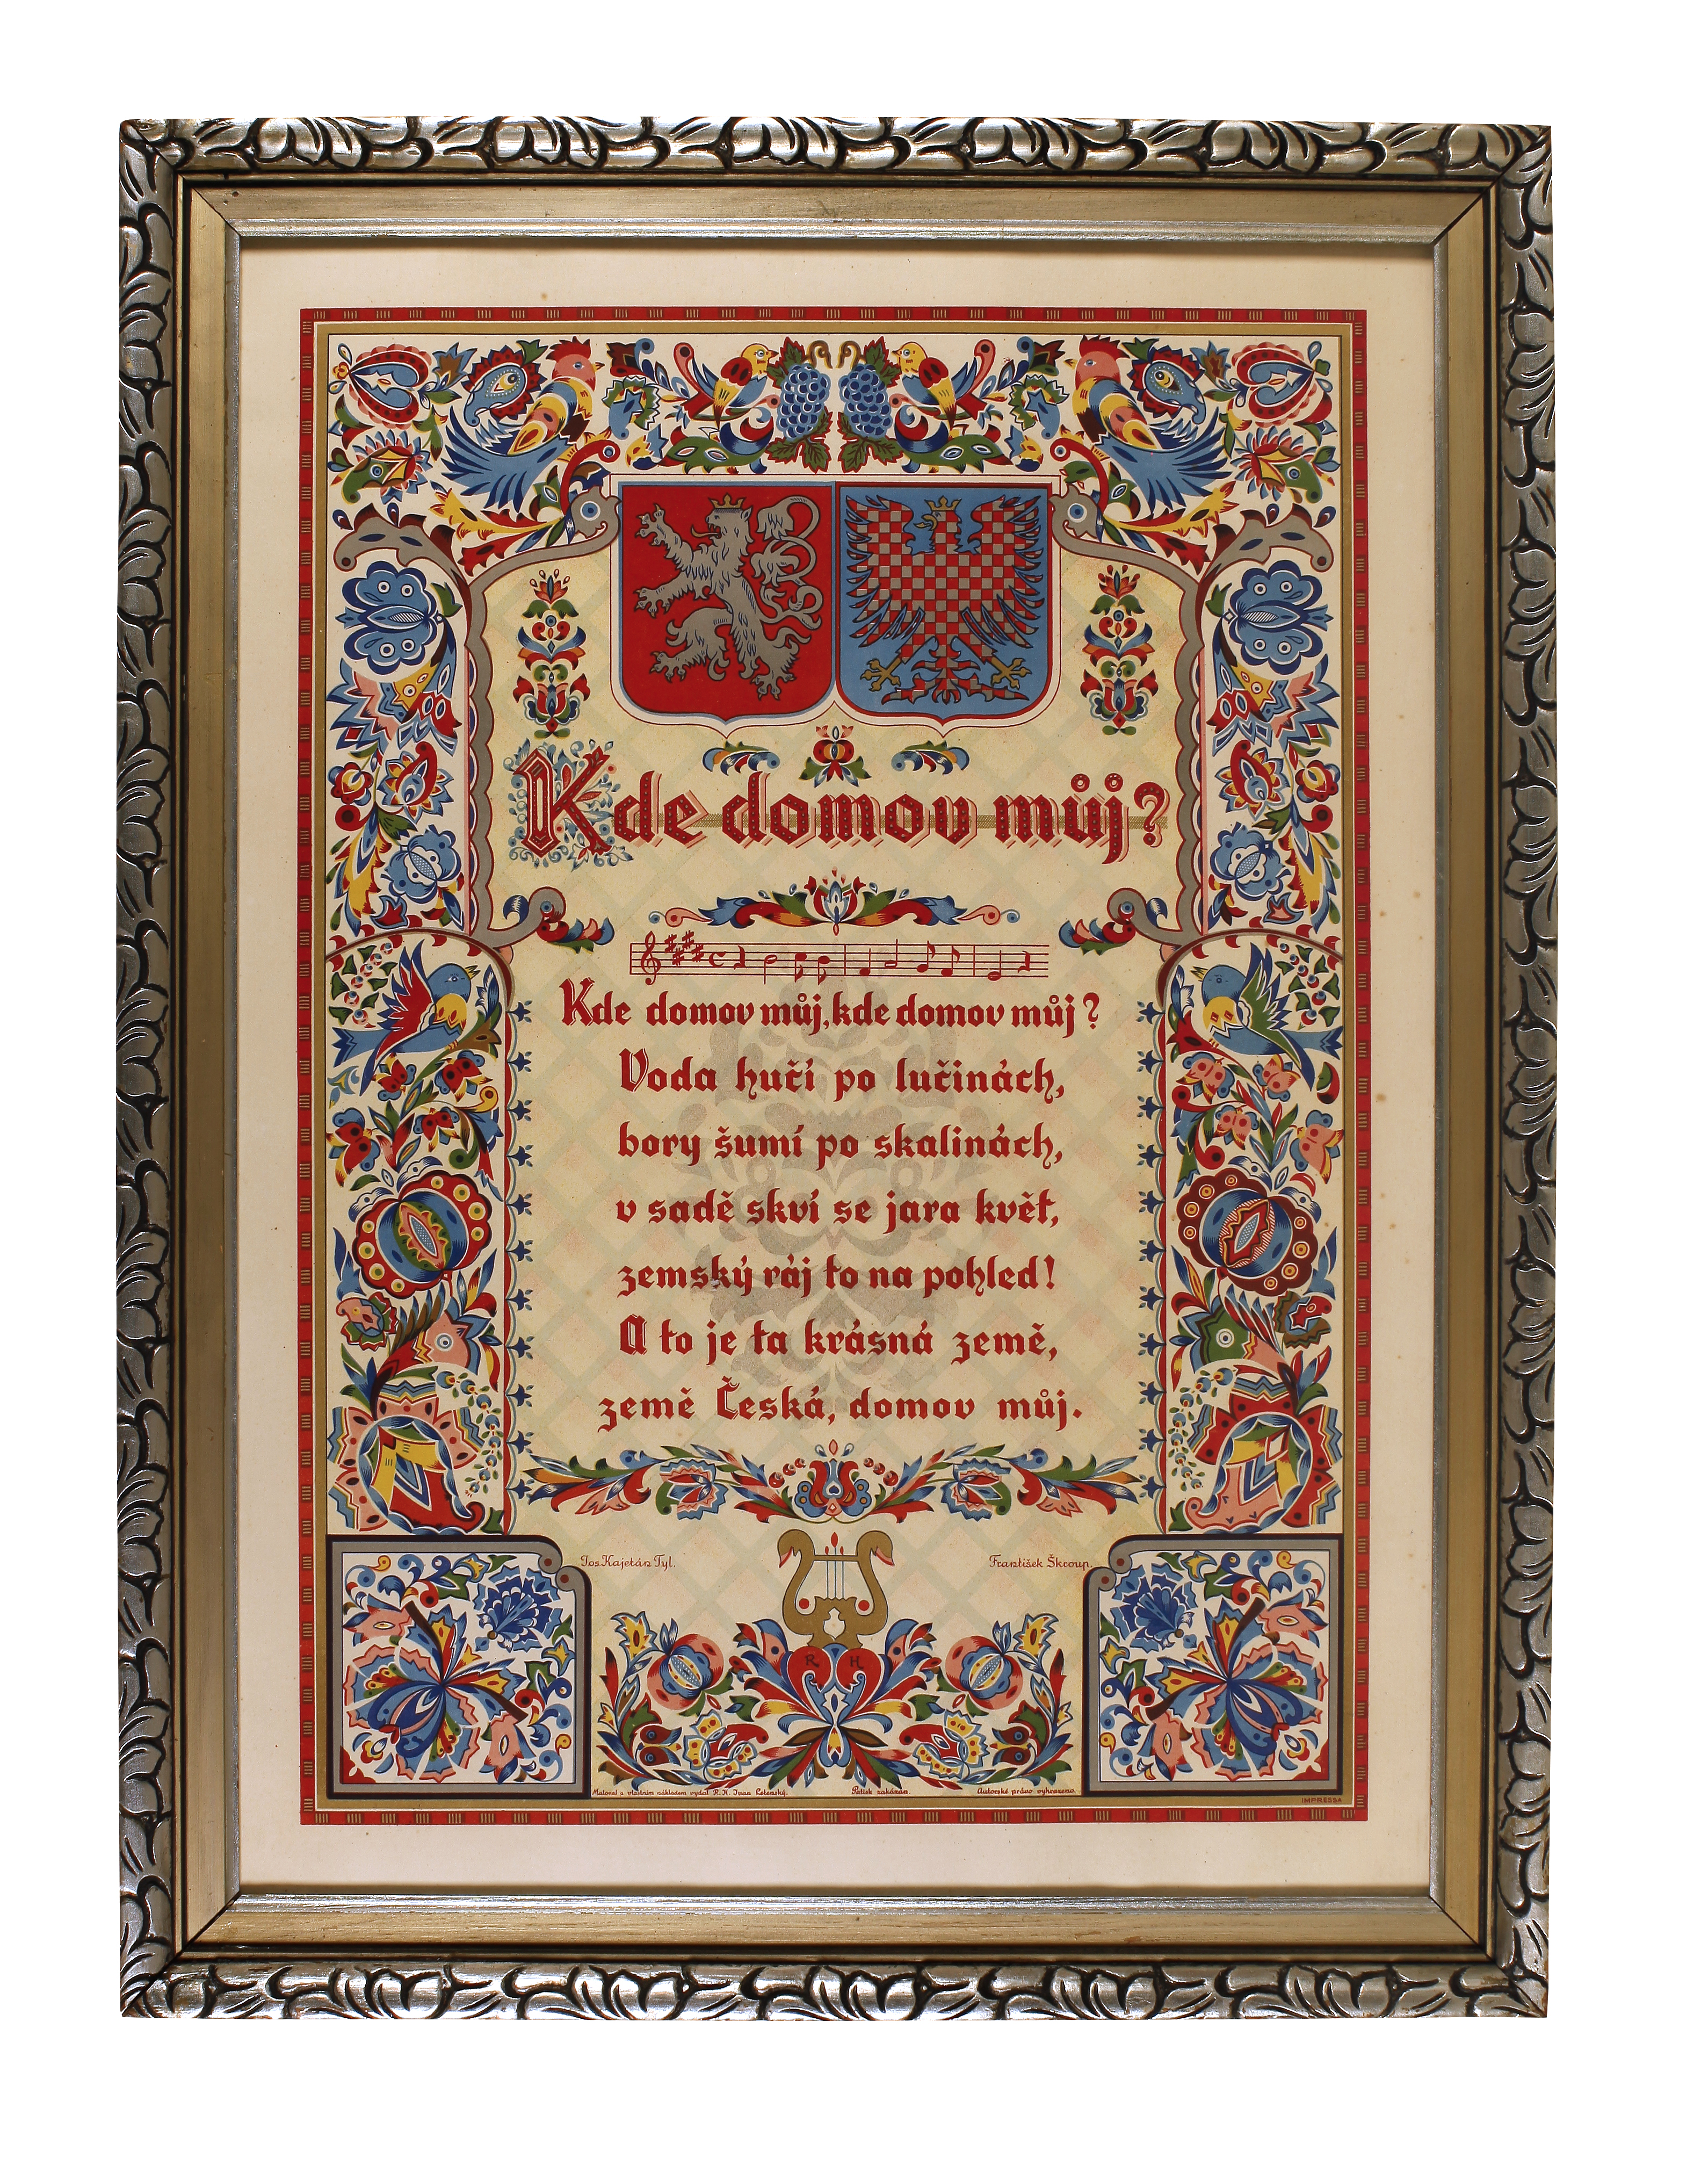 Kde domov můj?
Kde domov můj, kde domov můj?
Voda hučí po lučinách,
bory šumí po skalinách,
v sadě skví se jara květ,
zemský ráj to na pohled!
A to je ta krásná země,
země Česká, domov můj.
Jos. Kajetán Tyl. František Škroup.
R H
Maloval a vlastním nákladem vydal R. H. Ivan Letenský. Patisk zakázán. Autorské právo vyhrazeno.
IMPRESSA